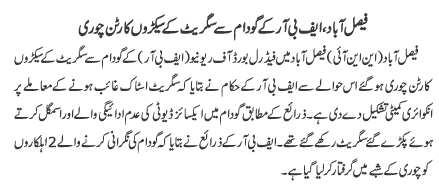 فیصل آباد، ایف بی آر کے گودام سے سگریٹ کے سیکڑوں کارٹن چوری
فیصل آباد (این این آئی) فیصل آباد میں فیڈرل بورڈ آف ریونیو (ایف بی آر) کے گودام سے سگریٹ کے سیکڑوں
کارٹن چوری ہو گئے اس حوالے سے ایف بی آر کے حکام نے بتایا کہ سگریٹ اسٹاک غائب ہونے کے معاملے پر
انکوائری کمیٹی تشکیل دے دی ہے۔ ذرائع کے مطابق گودام میں ایکسائز ڈیوٹی کی عدم ادائیگی والے اور اسمگل کرتے
ہوئے پکڑے گئے سگریٹ رکھے گئے تھے۔ ایف بی آر کے ذرائع نے بتایا کہ گودام کی نگرانی کرنے والے 2 اہلکاروں کو
چوری کے شبے میں گرفتار کر لیا گیا ہے۔